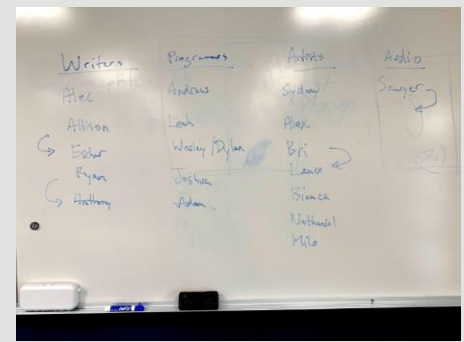 Writers
Alec
Allison
Escher
Ryan
Anthony
Programmers
Andrew
Leah
Wesley/Dylan
Joshua
Adam
Artists
Sydney
Alex
Bri
Lance
Bianca
Nathaniel
Milo
Audio
Sawyer
EXPO